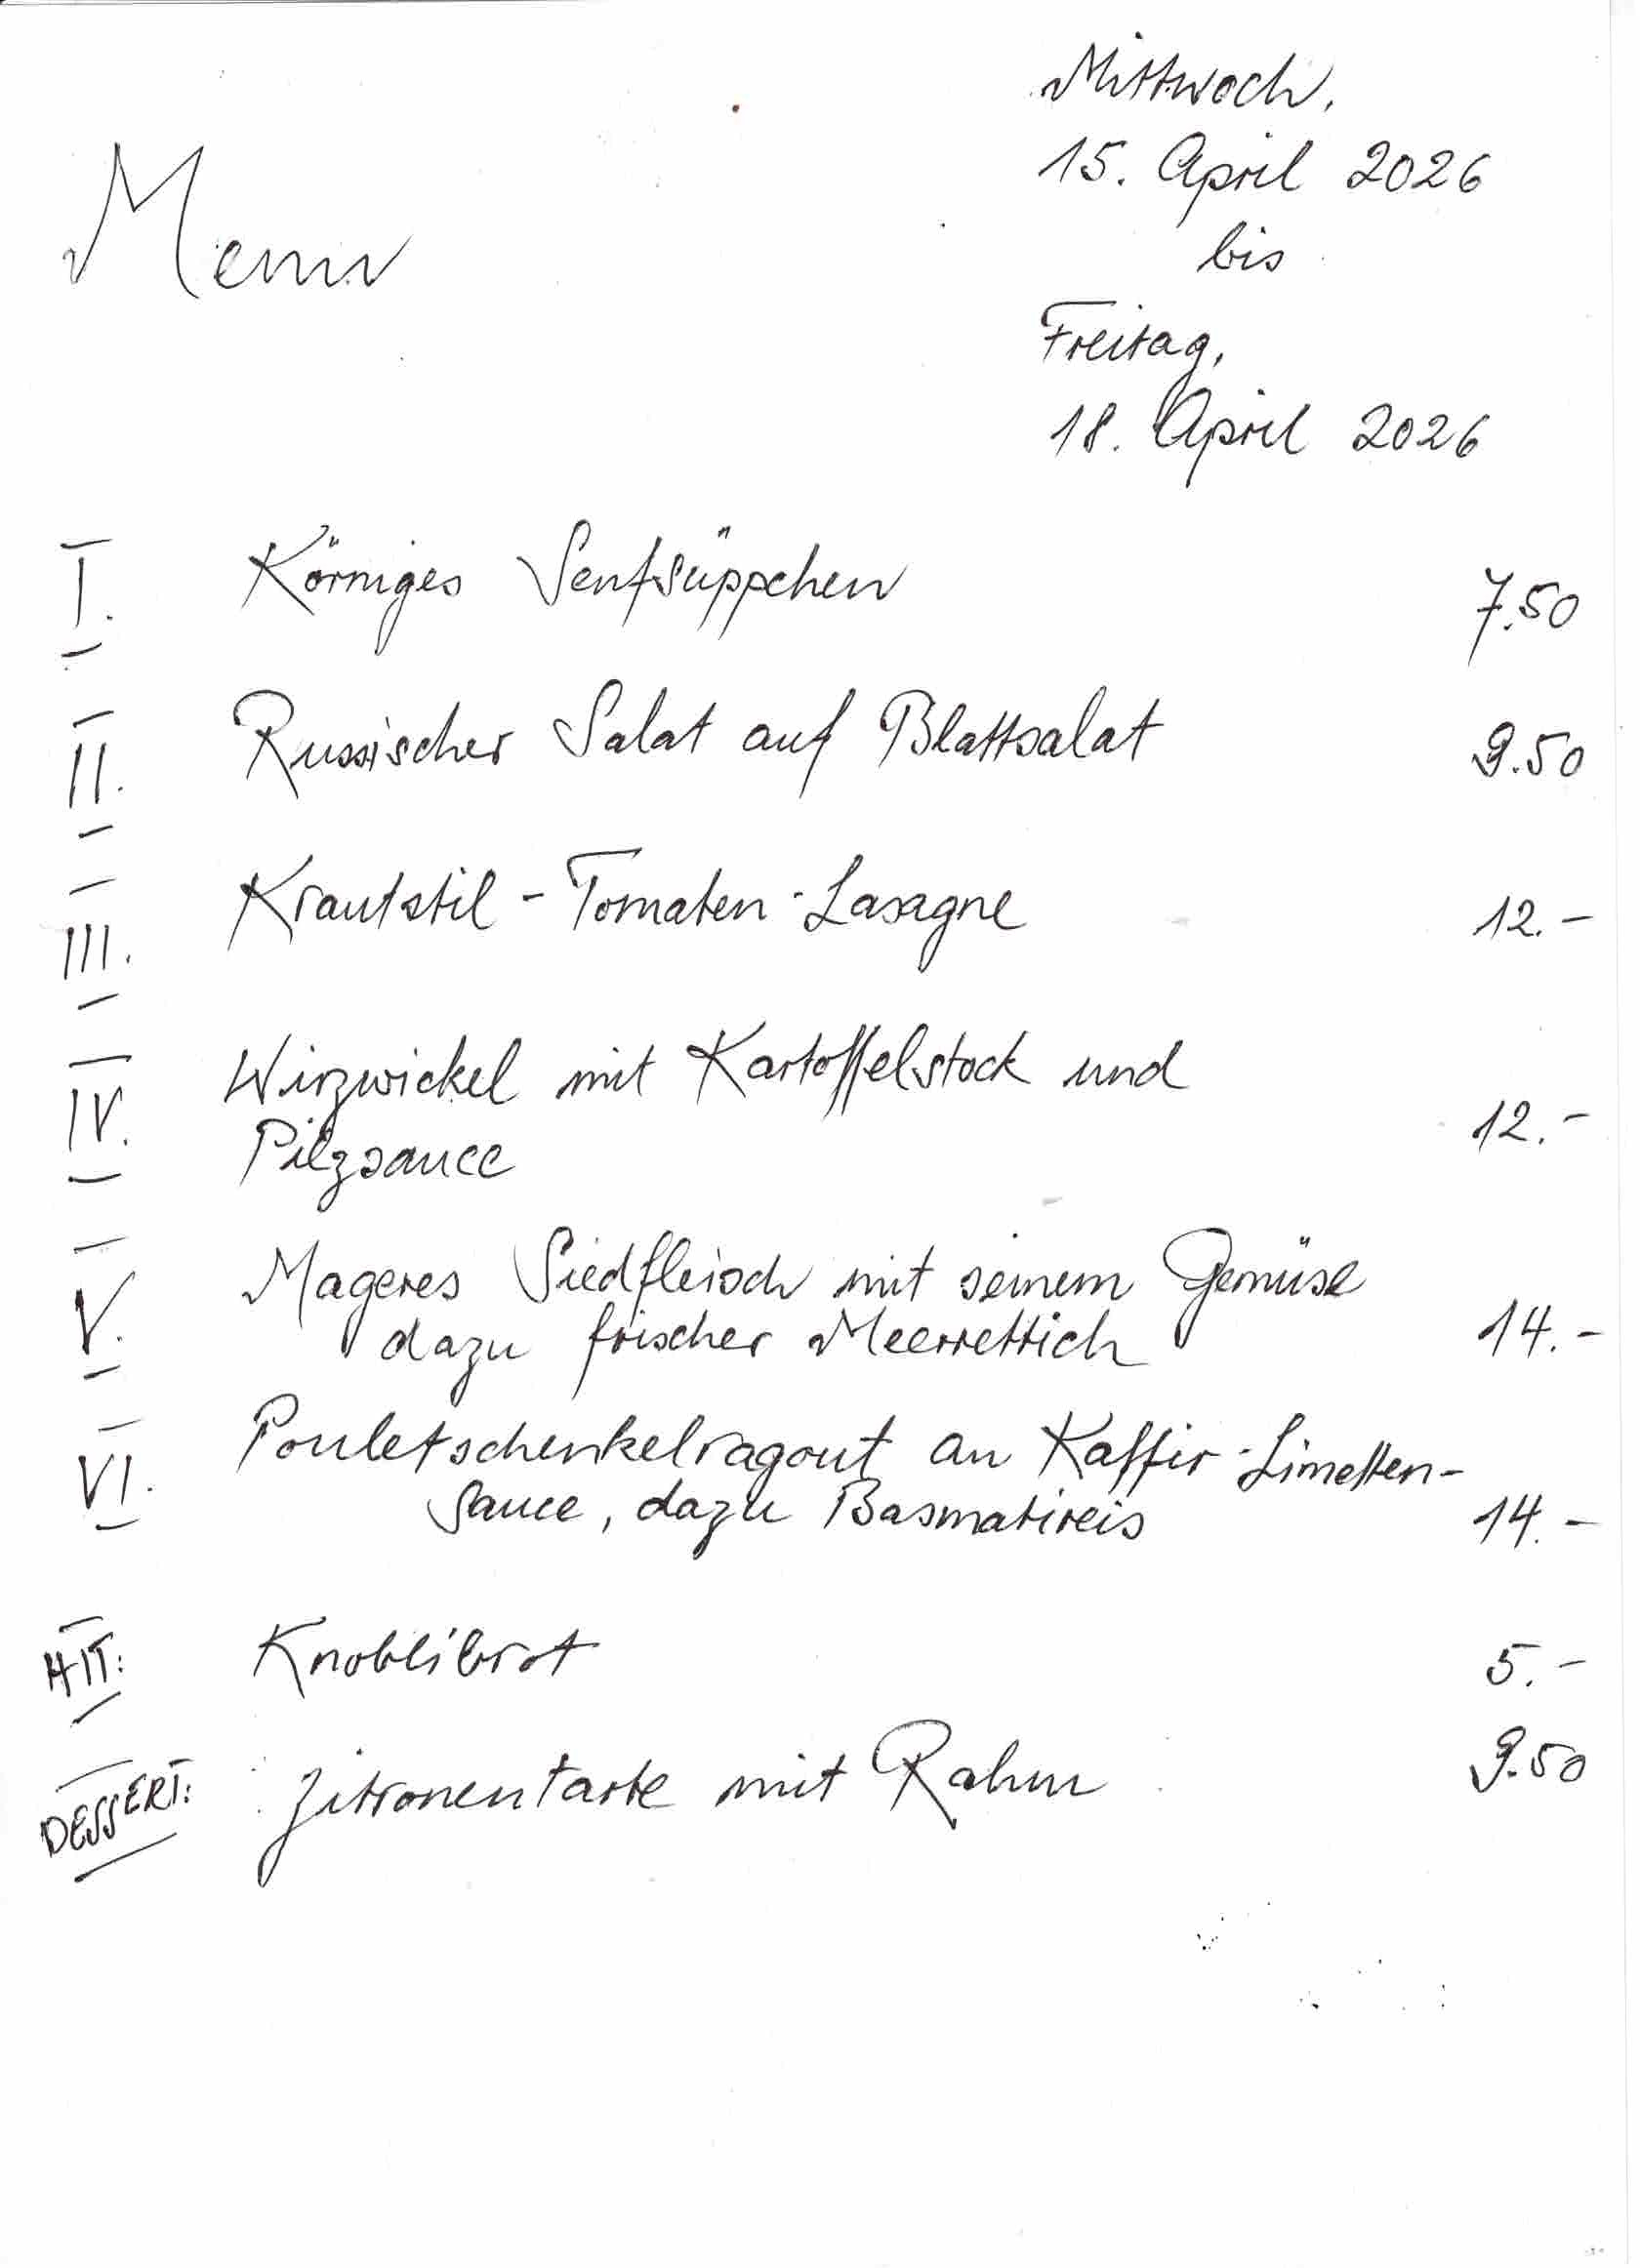 Mittwoch,
15. April 2026
bis
Freitag,
18. April 2026
Menu
I. Körniges Senfsüppchen 7.50
II. Russischer Salat auf Blattsalat 9.50
III. Krautstil-Tomaten-Lasagne 12.-
IV. Wirzwickel mit Kartoffelstock und
Pilzsauce 12.-
V. Mageres Siedfleisch mit seinem Gemüse
dazu frischer Meerrettich 14.-
VI. Pouletschenkelragout an Kaffir-Limetten-
sauce, dazu Basmatireis 14.-
HIT: Knoblibrot 5.-
DESSERT: Zitronentarte mit Rahm 9.50